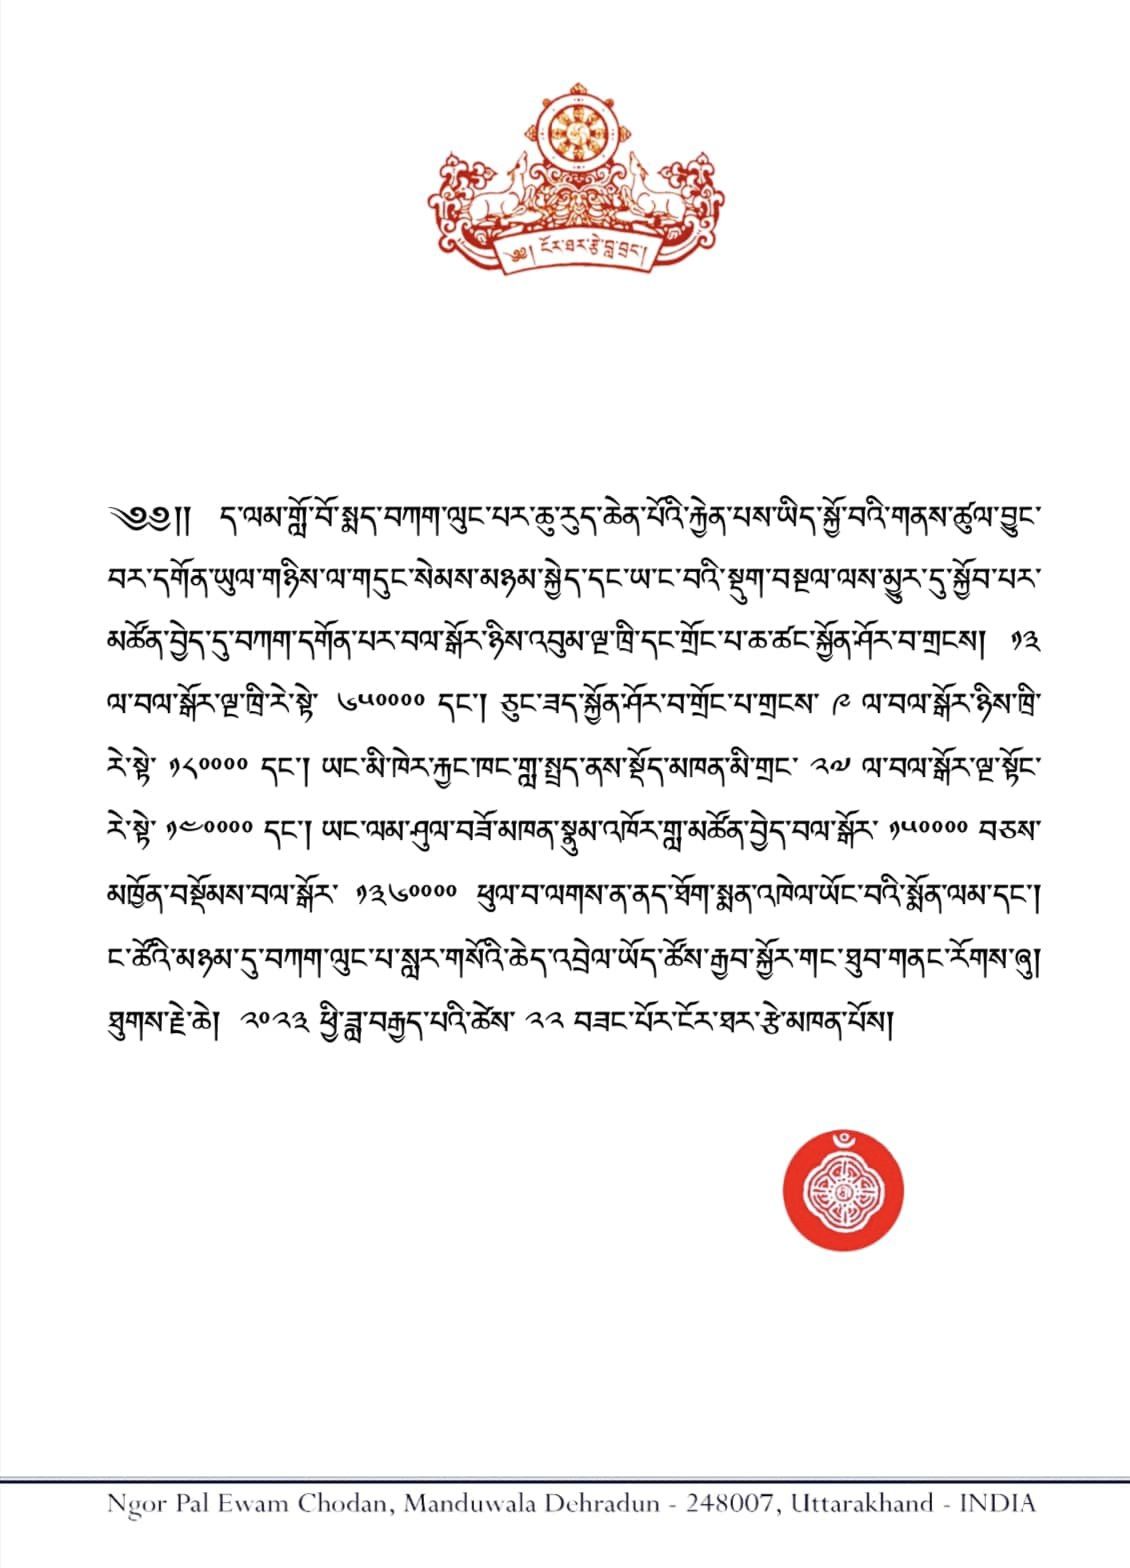 ༄༅། ངོར་ཐར་རྩེ་བླ་བྲང་།
༄༅།། ད་ལམ་གློ་བོ་སྨད་བཀག་ལུང་པར་ཆུ་རུད་ཆེན་པོའི་རྐྱེན་པས་ཡིད་སྐྱོ་བའི་གནས་ཚུལ་བྱུང་
བར་དགོན་ཡུལ་གཉིས་ལ་གདུང་སེམས་མཉམ་སྐྱེད་དང་ཡ་ང་བའི་སྡུག་བསྔལ་ལས་མྱུར་དུ་སྐྱོབ་པར་
མཚོན་བྱེད་དུ་བཀག་དགོན་པར་བལ་སྒོར་ཉིས་འབུམ་ལྔ་ཁྲི་དང་གྲོང་པ་ཆ་ཚང་སྐྱོན་ཤོར་བ་གྲངས། ༡༣
ལ་བལ་སྒོར་ལྔ་ཁྲི་རེ་སྟེ་ ༦༥༠༠༠༠ དང་། ཅུང་ཟད་སྐྱོན་ཤོར་བ་གྲོང་པ་གྲངས་ ༩ ལ་བལ་སྒོར་ཉིས་ཁྲི་
རེ་སྟེ་ ༡༨༠༠༠༠ དང་། ཡང་མི་ཁེར་རྐྱང་ཁང་གླ་སྤྲད་ནས་སྡོད་མཁན་མི་གྲང་ ༢༧ ལ་བལ་སྒོར་ལྔ་སྟོང་
རེ་སྟེ་ ༡༣༠༠༠༠ དང་། ཡང་ལམ་ཤུལ་བཟོ་མཁན་སྣུམ་འཁོར་གླ་མཚོན་བྱེད་བལ་སྒོར་ ༡༥༠༠༠༠ བཅས་
མཁྱོན་བསྡོམས་བལ་སྒོར་ ༡༣༦༠༠༠༠ ཕུལ་བ་ལགས་ན་ནད་ཐོག་སྨན་འཁེལ་ཡོང་བའི་སྨོན་ལམ་དང་།
ང་ཚོའི་མཉམ་དུ་བཀག་ལུང་པ་སླར་གསོའི་ཆེད་འབྲེལ་ཡོད་ཚོས་རྒྱབ་སྐྱོར་གང་ཐུབ་གནང་རོགས་ཞུ།
ཐུགས་རྗེ་ཆེ། ༢༠༢༣ ཕྱི་ཟླ་བརྒྱད་པའི་ཚེས་ ༢༢ བཟང་པོར་ངོར་ཐར་རྩེ་མཁན་པོས།
Ngor Pal Ewam Chodan, Manduwala Dehradun - 248007, Uttarakhand - INDIA